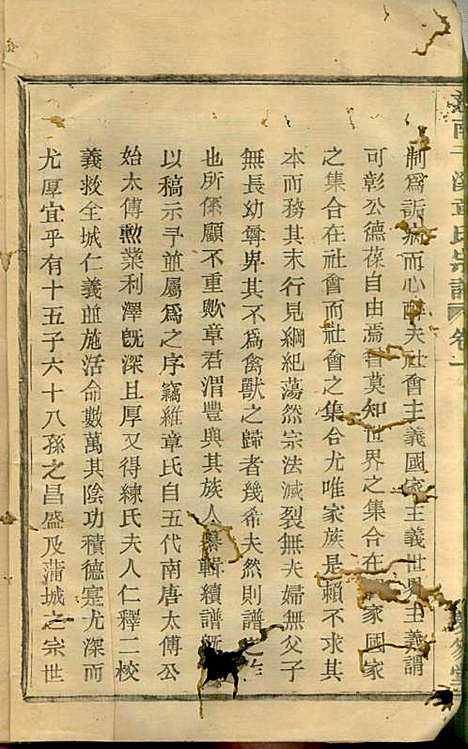 制為詬病而心醉夫社會主義國家主義世界主義謂
可彰公德葆自由焉者莫知世界之集合在國家國家
之集合在社會而社會之集合尤唯家族是賴不求其
本而務其末行見綱紀蕩然宗法滅裂無夫婦無父子
無長幼尊界其不為禽獸之歸者幾希夫然則譜之作
也所係顧不重歟章君渭豐與其族人纂輯續譜既
以稿示予並屬為之序竊維章氏自五代南唐太傅公
始太傅勲業利澤旣深且厚又得練氏夫人仁釋二校
義救全城仁義並施活命數萬其陰功積德寔尤深而
尤厚宜乎有十五子六十八孫之昌盛及蒲城之宗世
南 溪章氏宗譜 卷一